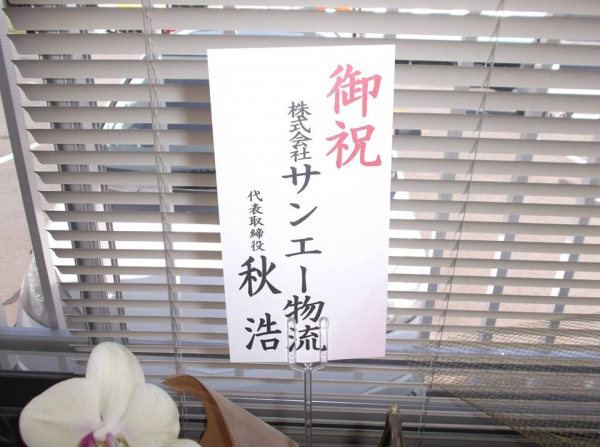 御祝
株式会社サンエー物流
代表取締役 秋浩